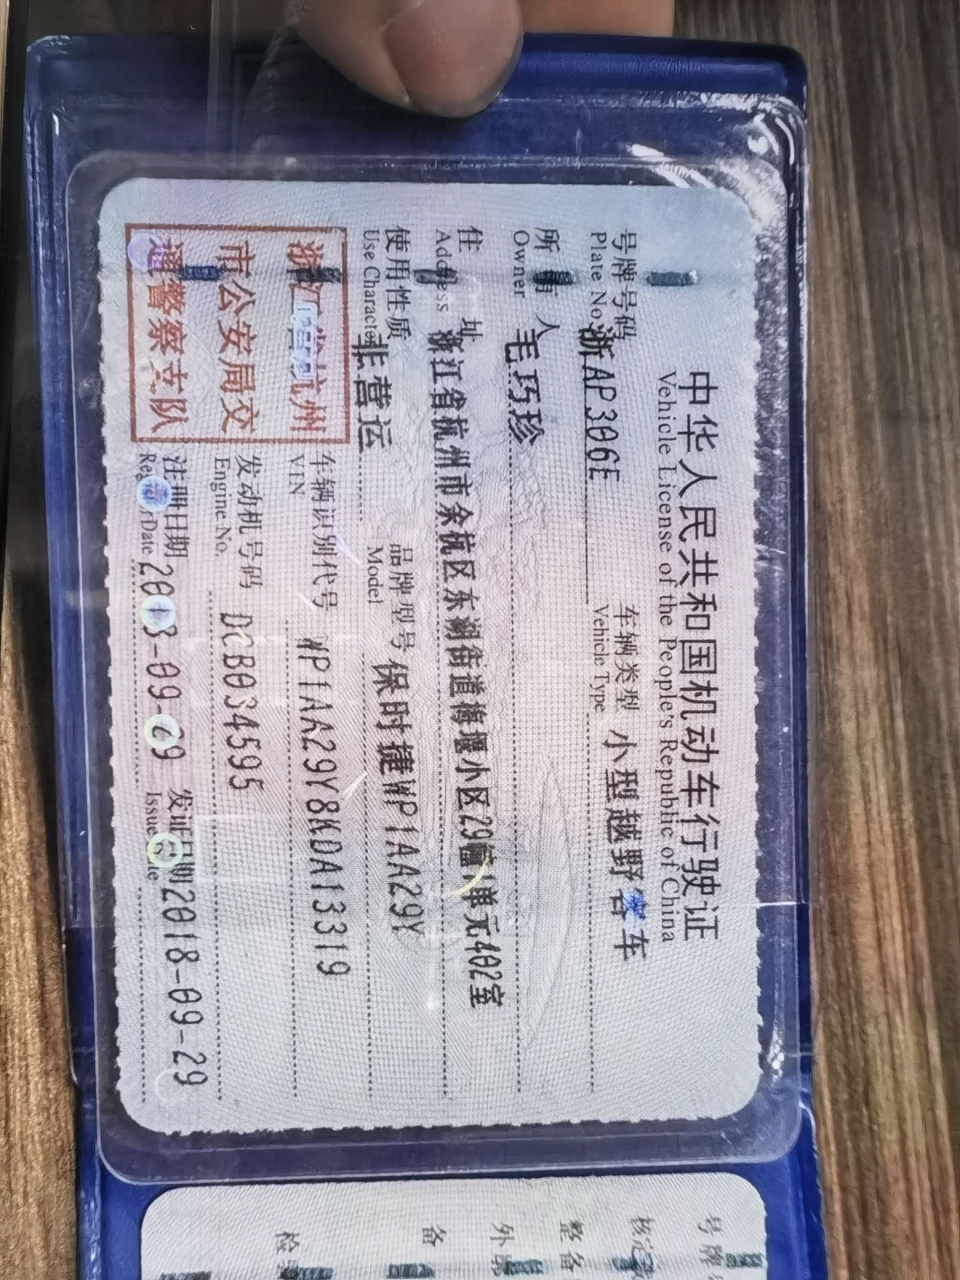 中华人民共和国机动车行驶证
Vehicle License of the People's Republic of China
号牌号码 浙AP306E 车辆类型 小型越野客车
Plate No. Vehicle Type
所有人 毛巧珍
Owner
住址 浙江省杭州市余杭区东湖街道梅堰小区29幢1单元402室
Address
使用性质 非营运 品牌型号 保时捷WP1AA29Y
Use Character Model
浙江省杭州
市公安局交
通警察支队
车辆识别代号 WP1AA29Y8KDA13319
VIN
发动机号码 DCB034595
Engine No.
注册日期 2018-09-29 发证日期 2018-09-29
Register Date Issue Date
号牌
核定
整备
外廓
备
检